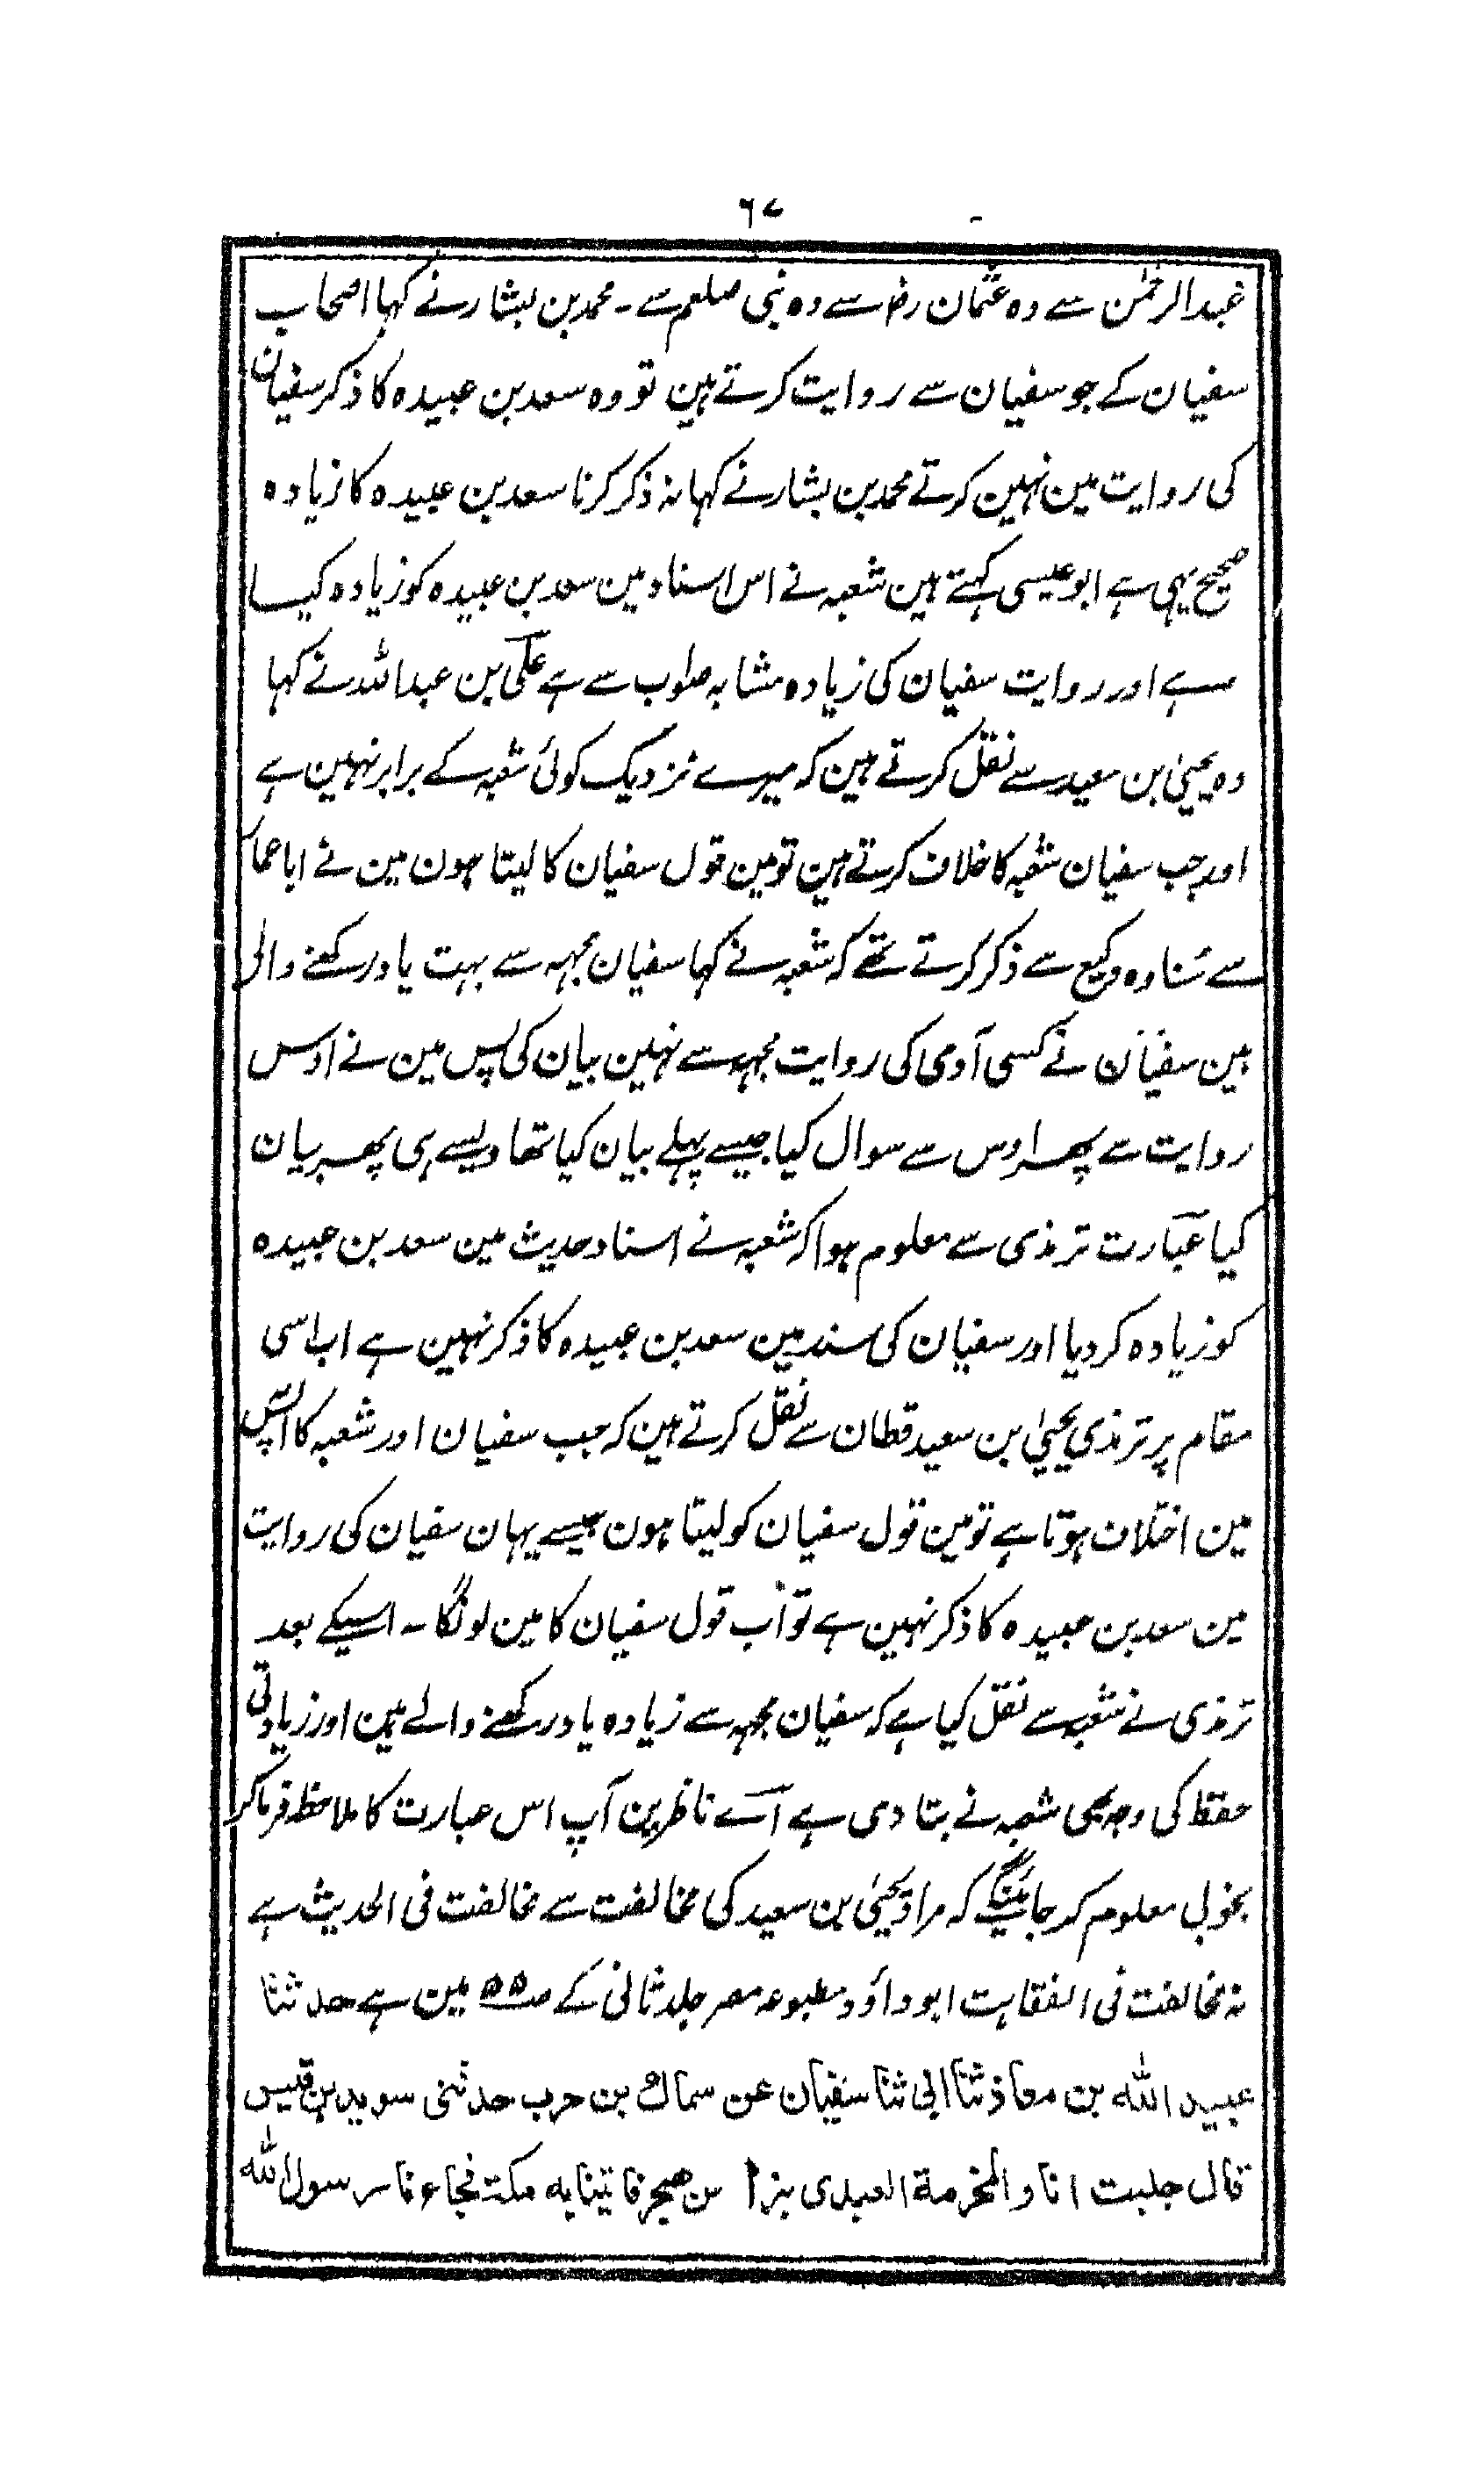 ٦٧
عبدالرحمٰن سے وہ عثمان رض سے وہ نبی صلعم سے۔ محمد بن بشار نے کہا اصحاب
سفیان کے جو سفیان سے روایت کرتے ہین تو وہ سعد بن عبیدہ کا ذکر سفیان
کی روایت مین نہین کرتے محمد بن بشار نے کہا نہ ذکر کرنا سعد بن عبیدہ کا زیادہ
صحیح یہی ہے ابو عیسی کہتے ہین شعبہ نے اس اسناد مین سعد بن عبیدہ کو زیادہ کیا
ہے اور روایت سفیان کی زیادہ مشابہ صواب سے ہے علی بن عبداللہ نے کہا
وہ یحییٰ بن سعید سے نقل کرتے ہین کہ میرے نزدیک کوئی شعبہ کے برابر نہین ہے
اور جب سفیان شعبہ کا خلاف کرتے ہین تو مین قول سفیان کا لیتا ہون مین نے ابا عمار
سے سنا وہ وکیع سے ذکر کرتے تھے کہ شعبہ نے کہا سفیان مجہہ سے بہت یاد رکھنے والی
ہین سفیان نے کسی آدمی کی روایت مجہہ سے نہین بیان کی پس مین نے اوس
روایت سے پھر اوس سے سوال کیا جیسے پہلے بیان کیا تھا ویسے ہی پھر بیان
کیا عبارت ترمذی سے معلوم ہوا کہ شعبہ نے اسناد حدیث مین سعد بن عبیدہ
کو زیادہ کردیا اور سفیان کی سند مین سعد بن عبیدہ کا ذکر نہین ہے اب اسی
مقام پر ترمذی یحییٰ بن سعید قطان سے نقل کرتے ہین کہ جب سفیان اور شعبہ کا آپس
مین اختلاف ہوتا ہے تو مین قول سفیان کو لیتا ہون جیسے یہان سفیان کی روایت
مین سعد بن عبیدہ کا ذکر نہین ہے تو اب قول سفیان کا مین لونگا۔ اسیکے بعد
ترمذی نے شعبہ سے نقل کیا ہے کہ سفیان مجہہ سے زیادہ یاد رکھنے والے ہین اور زیادتی
حفظ کی وجہ بھی شعبہ نے بتا دی ہے آے ناظرین آپ اس عبارت کا ملاحظہ فرماکر
بخوبی معلوم کر جائینگے کہ مراد یحییٰ بن سعید کی مخالفت سے مخالفت فی الحدیث ہے
نہ مخالفت فی الفقاہت ابو داؤد مطبوعہ مصر جلد ثانی کے صہ ۵۵ مین ہے حدثنا
عبید اللہ بن معاذ ثنا ابی ثنا سفیان عن سماک بن حرب حدثنی سوید بن قیس
قال جلبت انا والمخرمة العبدی بزا من هجر فاتینا به مکة فجاءنا رسول الله